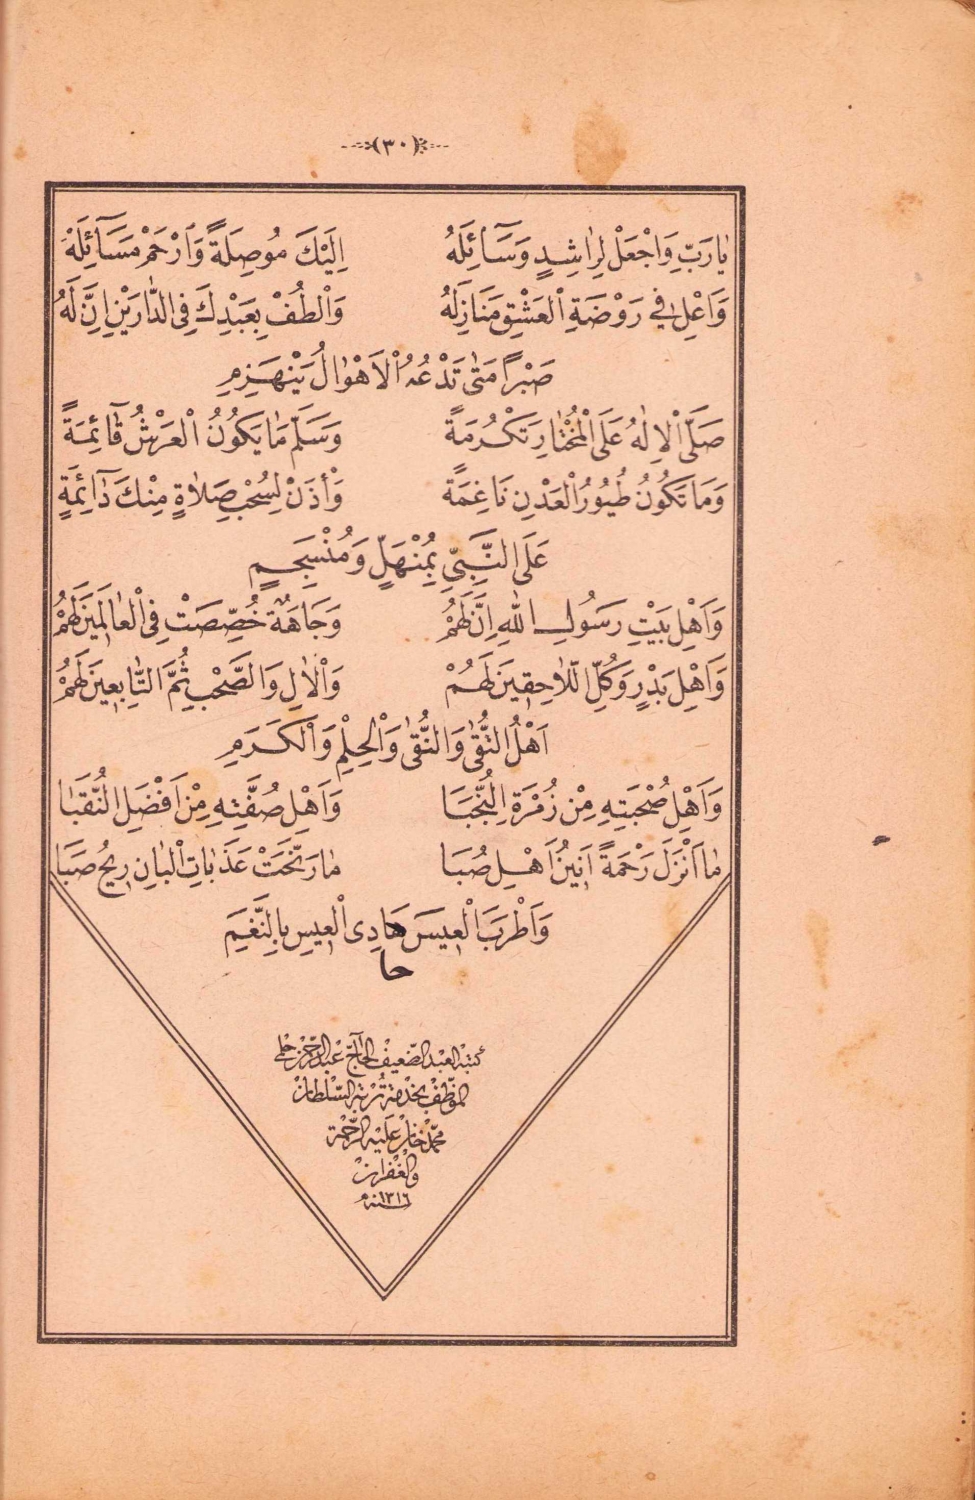 (٣٠)
يَارَبِّ وَاجْعَلْ لِرَاشِدٍ وَسَآئِلَهُ اِلَيْكَ مُوصِلَةً وَارْحَمْ مَسَآئِلَهْ
وَاَعْلِ فِي رَوْضَةِ الْعَشْقِ مَنَازِلَهُ وَالْطُفْ بِعَبْدِكَ فِي الدَّارَيْنِ اِنَّ لَهُ
صَبْرًا مَتٰى تَدْعُهُ الْاَهْوَالُ يَنْهَزِمِ
صَلَّى الْاِلٰهُ عَلَى الْمُخْتَارِ تَكْرُمَةً وَسَلَّمَ مَا يَكُونُ الْعَرْشُ قَآئِمَةً
وَمَا تَكُونُ طُيُورُ الْعَدْنِ نَاغِمَة وَأْذَنْ لِسُحْبِ صَلَاةٍ مِنْكَ دَآئِمَةٍ
عَلَى النَّبِيِّ بِمُنْهَلٍّ وَمُنْسَجِمٍ
وَاَهْلِ بَيْتِ رَسُولِ اللّٰهِ اِنَّ لَهُمْ وَجَاهَةً خُصِّصَتْ فِي الْعَالَمِينَ لَهُمْ
وَاَهْلِ بَدْرٍ وَكُلِّ اللَّاحِقِينَ لَهُمْ وَالْاٰلِ وَالصَّحْبِ ثُمَّ التَّابِعِينَ لَهُمُ
اَهْلُ التُّقٰى وَالنُّقٰى وَالْحِلْمِ وَالْكَرَمِ
وَاَهْلِ صُحْبَتِهِ مِنْ زُمْرَةِ النُّجَبَا وَاَهْلِ صُفَّتِهِ مِنْ اَفْضَلِ النُّقَبَا
مَا اَنْزَلَ رَحْمَةً اَنِينُ اَهْلِ صُبَا مَا رَنَّحَتْ عَذَبَاتِ الْبَانِ رِيحُ صَبَا
وَاَطْرَبَ الْعِيسَ هَادِى الْعِيسِ بِالنَّغَمِ
حا
كتبه العبد الضعيف الحاج عبد الرحمن حلمى
الموظف بخدمة تربة السلطان
محمد خان عليه الرحمة
والغفران
سنه ١٣١٦